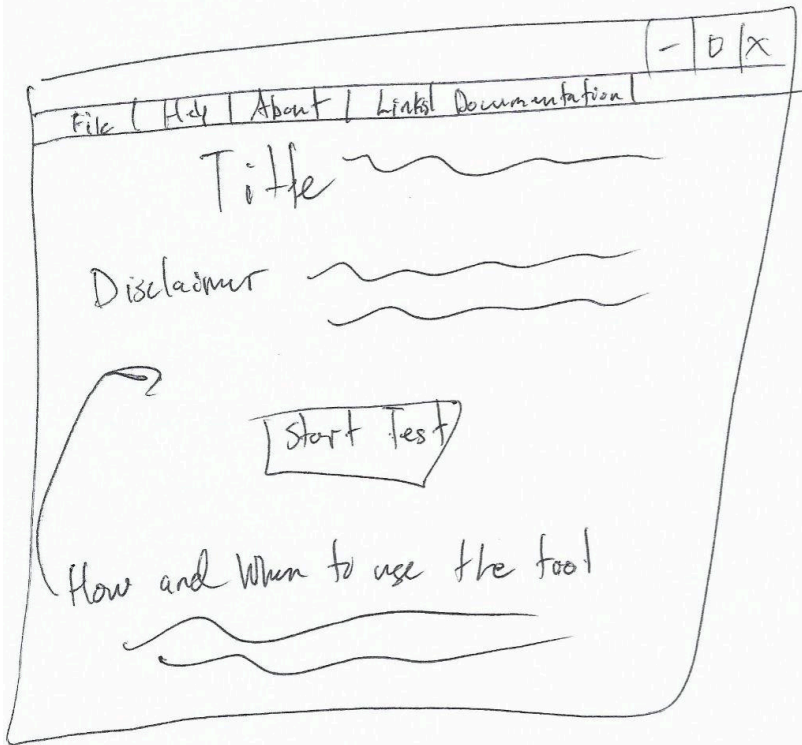 - | D | X
File | Help | About | Links | Documentation |
Title
Disclaimer
Start Test
How and When to use the tool